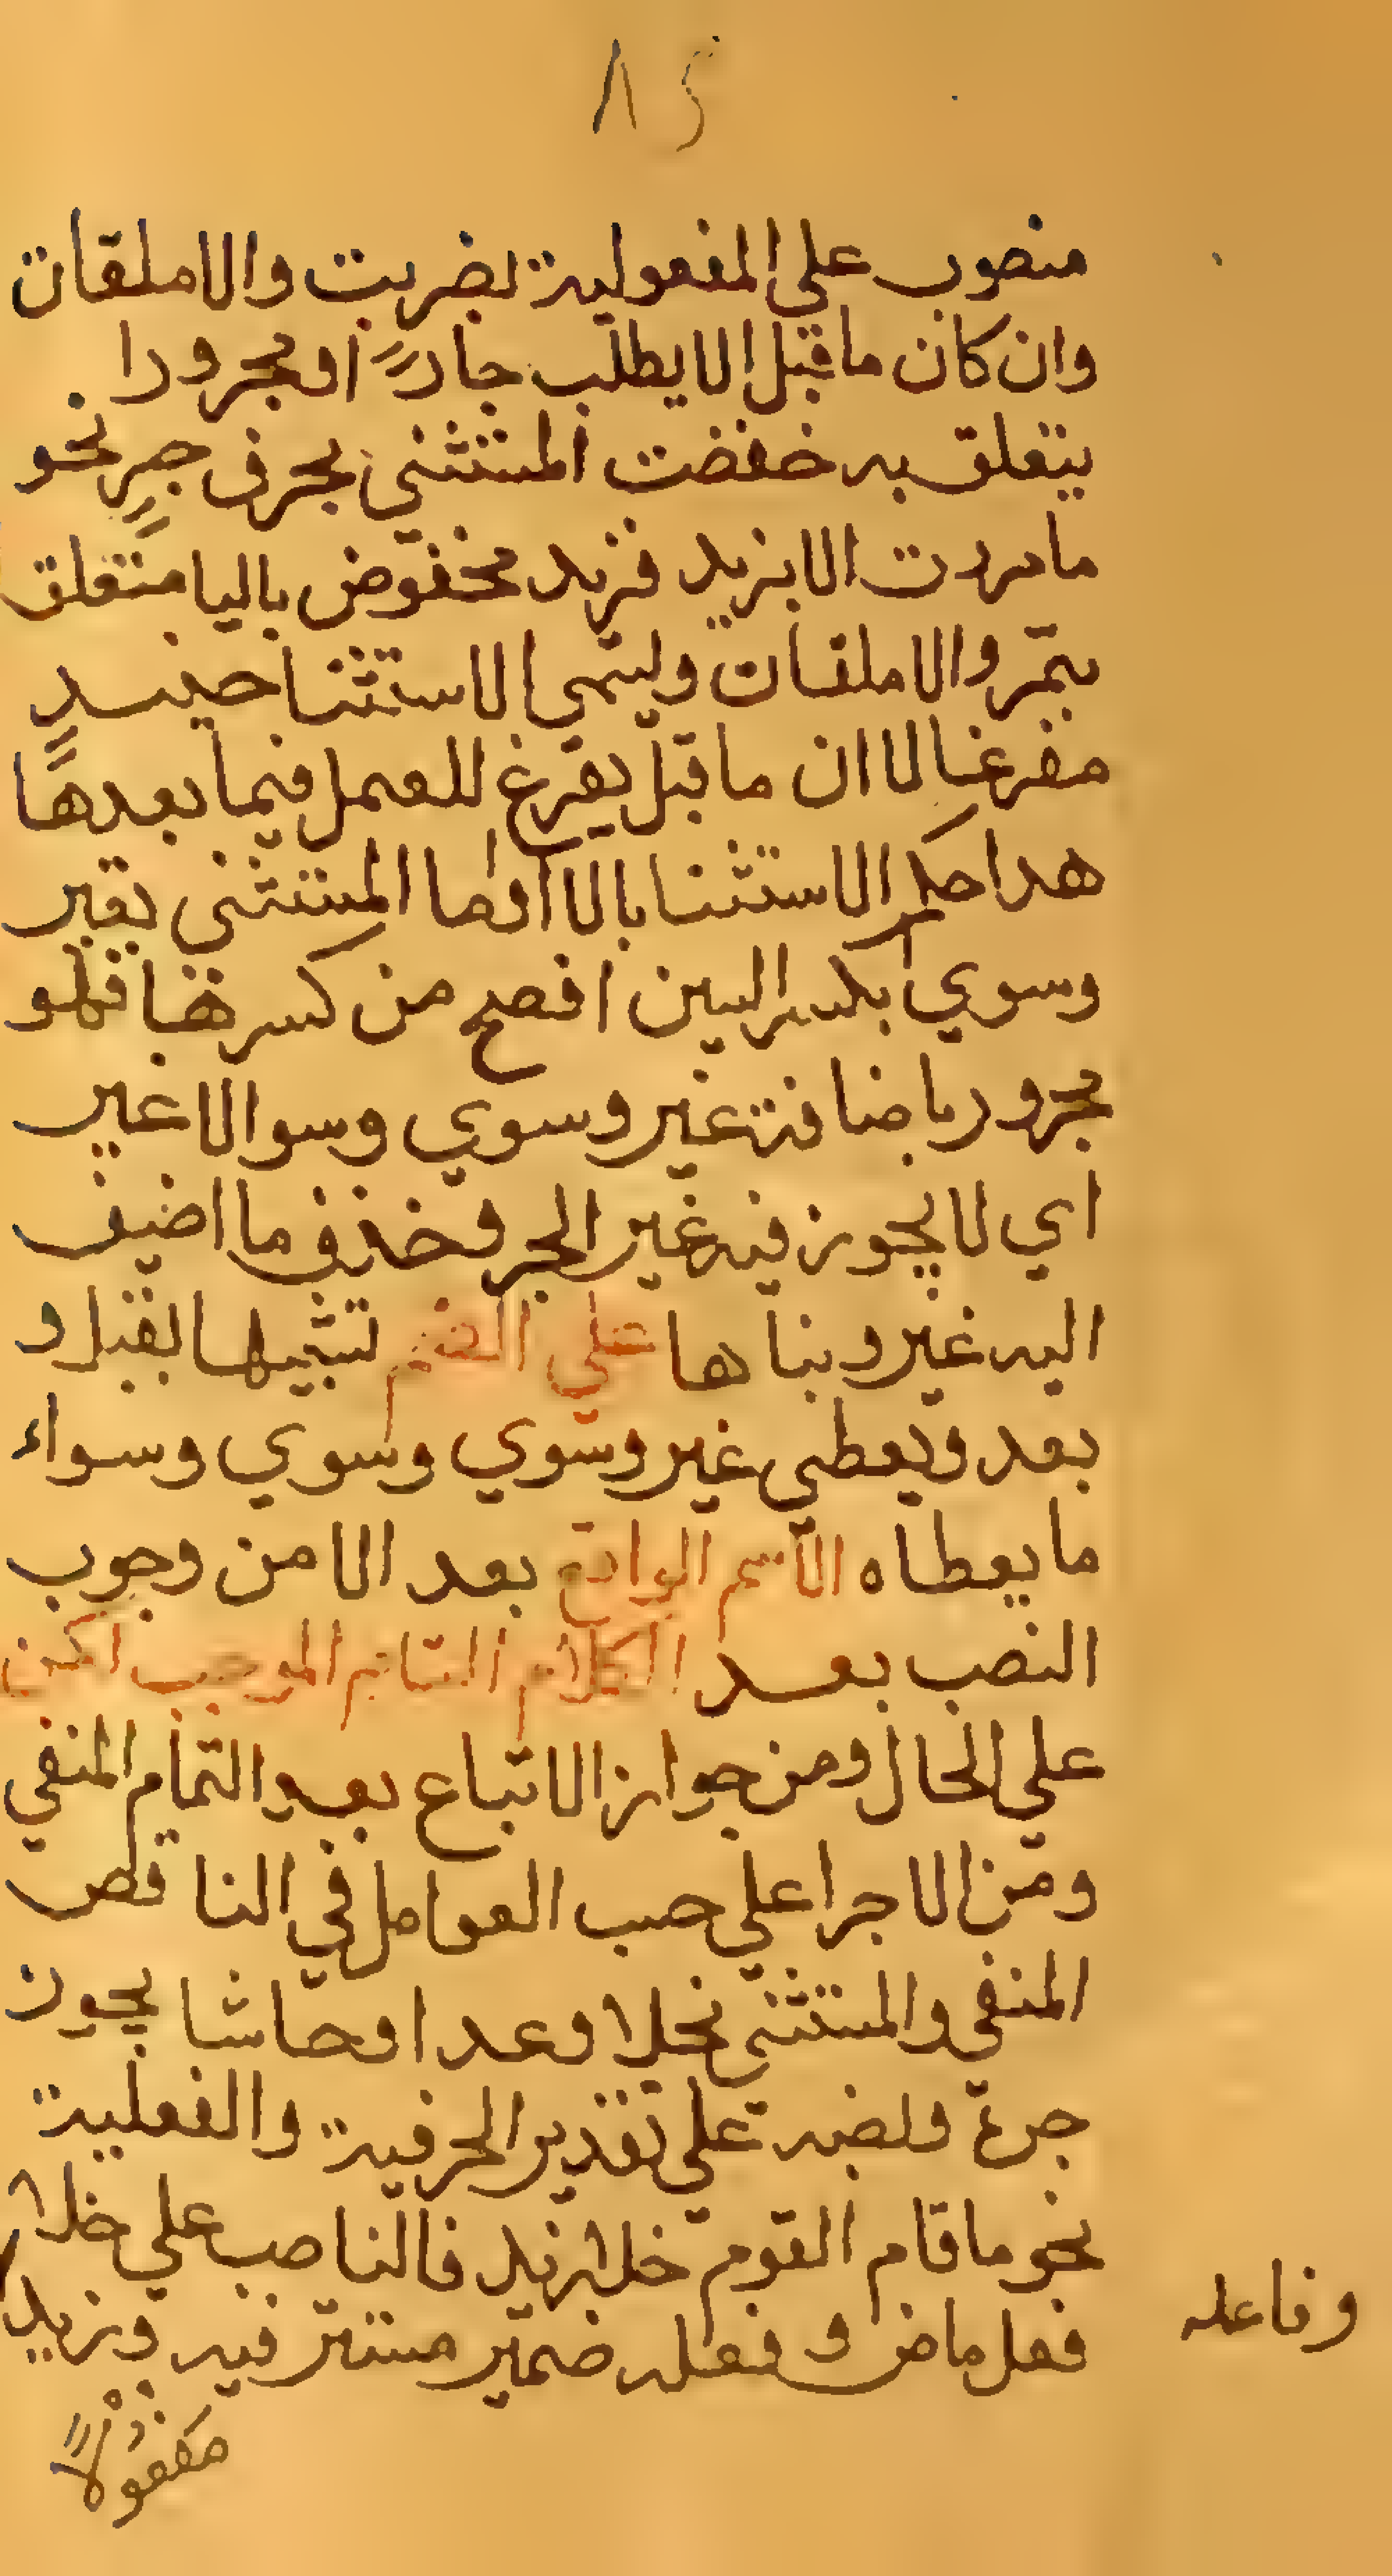 ٨٢
منصوب على المفعولية لضربت والا ملقات
وان كان ما قبل الا يطلب جاراً او مجرورا
يتعلق به خفضت المستثنى بحرف جرٍ نحو
ما مررت الا بزيد فزيد مخفوض باليا متعلق
بتمر والا ملقات ويسمى الاستثنا حينيدٍ
مفرغا لا ان ما قبل يفرغ للعمل فيما بعدها
هدا حكم الاستثنا بالا واما المستثنى بغير
وسوي بكسر السين افصح من كسرها فهو
مجرور باضافة غير وسوي وسوا لا غير
اي لا يجوز فيه غير الجر وخذف ما اضيف
اليه غير وبناها على الضم تشبيها بقبل و
بعد ويعطي غير وسوي وسوي وسواء
ما يعطاه الاسم الواقع بعد الا من وجوب
النصب بعد الكلام التام الموجب لكن
علي الحال ومن جواز الاتباع بعد التمام المنفي
ومن الاجرا علي حسب العوامل في الناقص
المنفي والمستثنى بخلا وعدا وحاشا يجوز
جره ونصبه علي تقدير الحرفية والفعلية
نحو ما قام القوم خلا زيد فالناصب علي خلا
فعل ماض و فعله ضمير مستتر فيه وزيد
وفاعله
مفعولاً